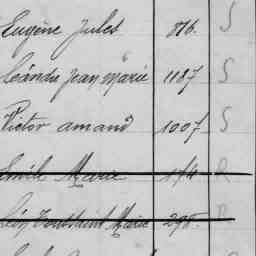 Eugène Jules 816. S
Léandre Jean Marie 1187 S
Victor Amand 1007 S
Emile Marie 1/4 R
Léon Toussaint Marie 295. R